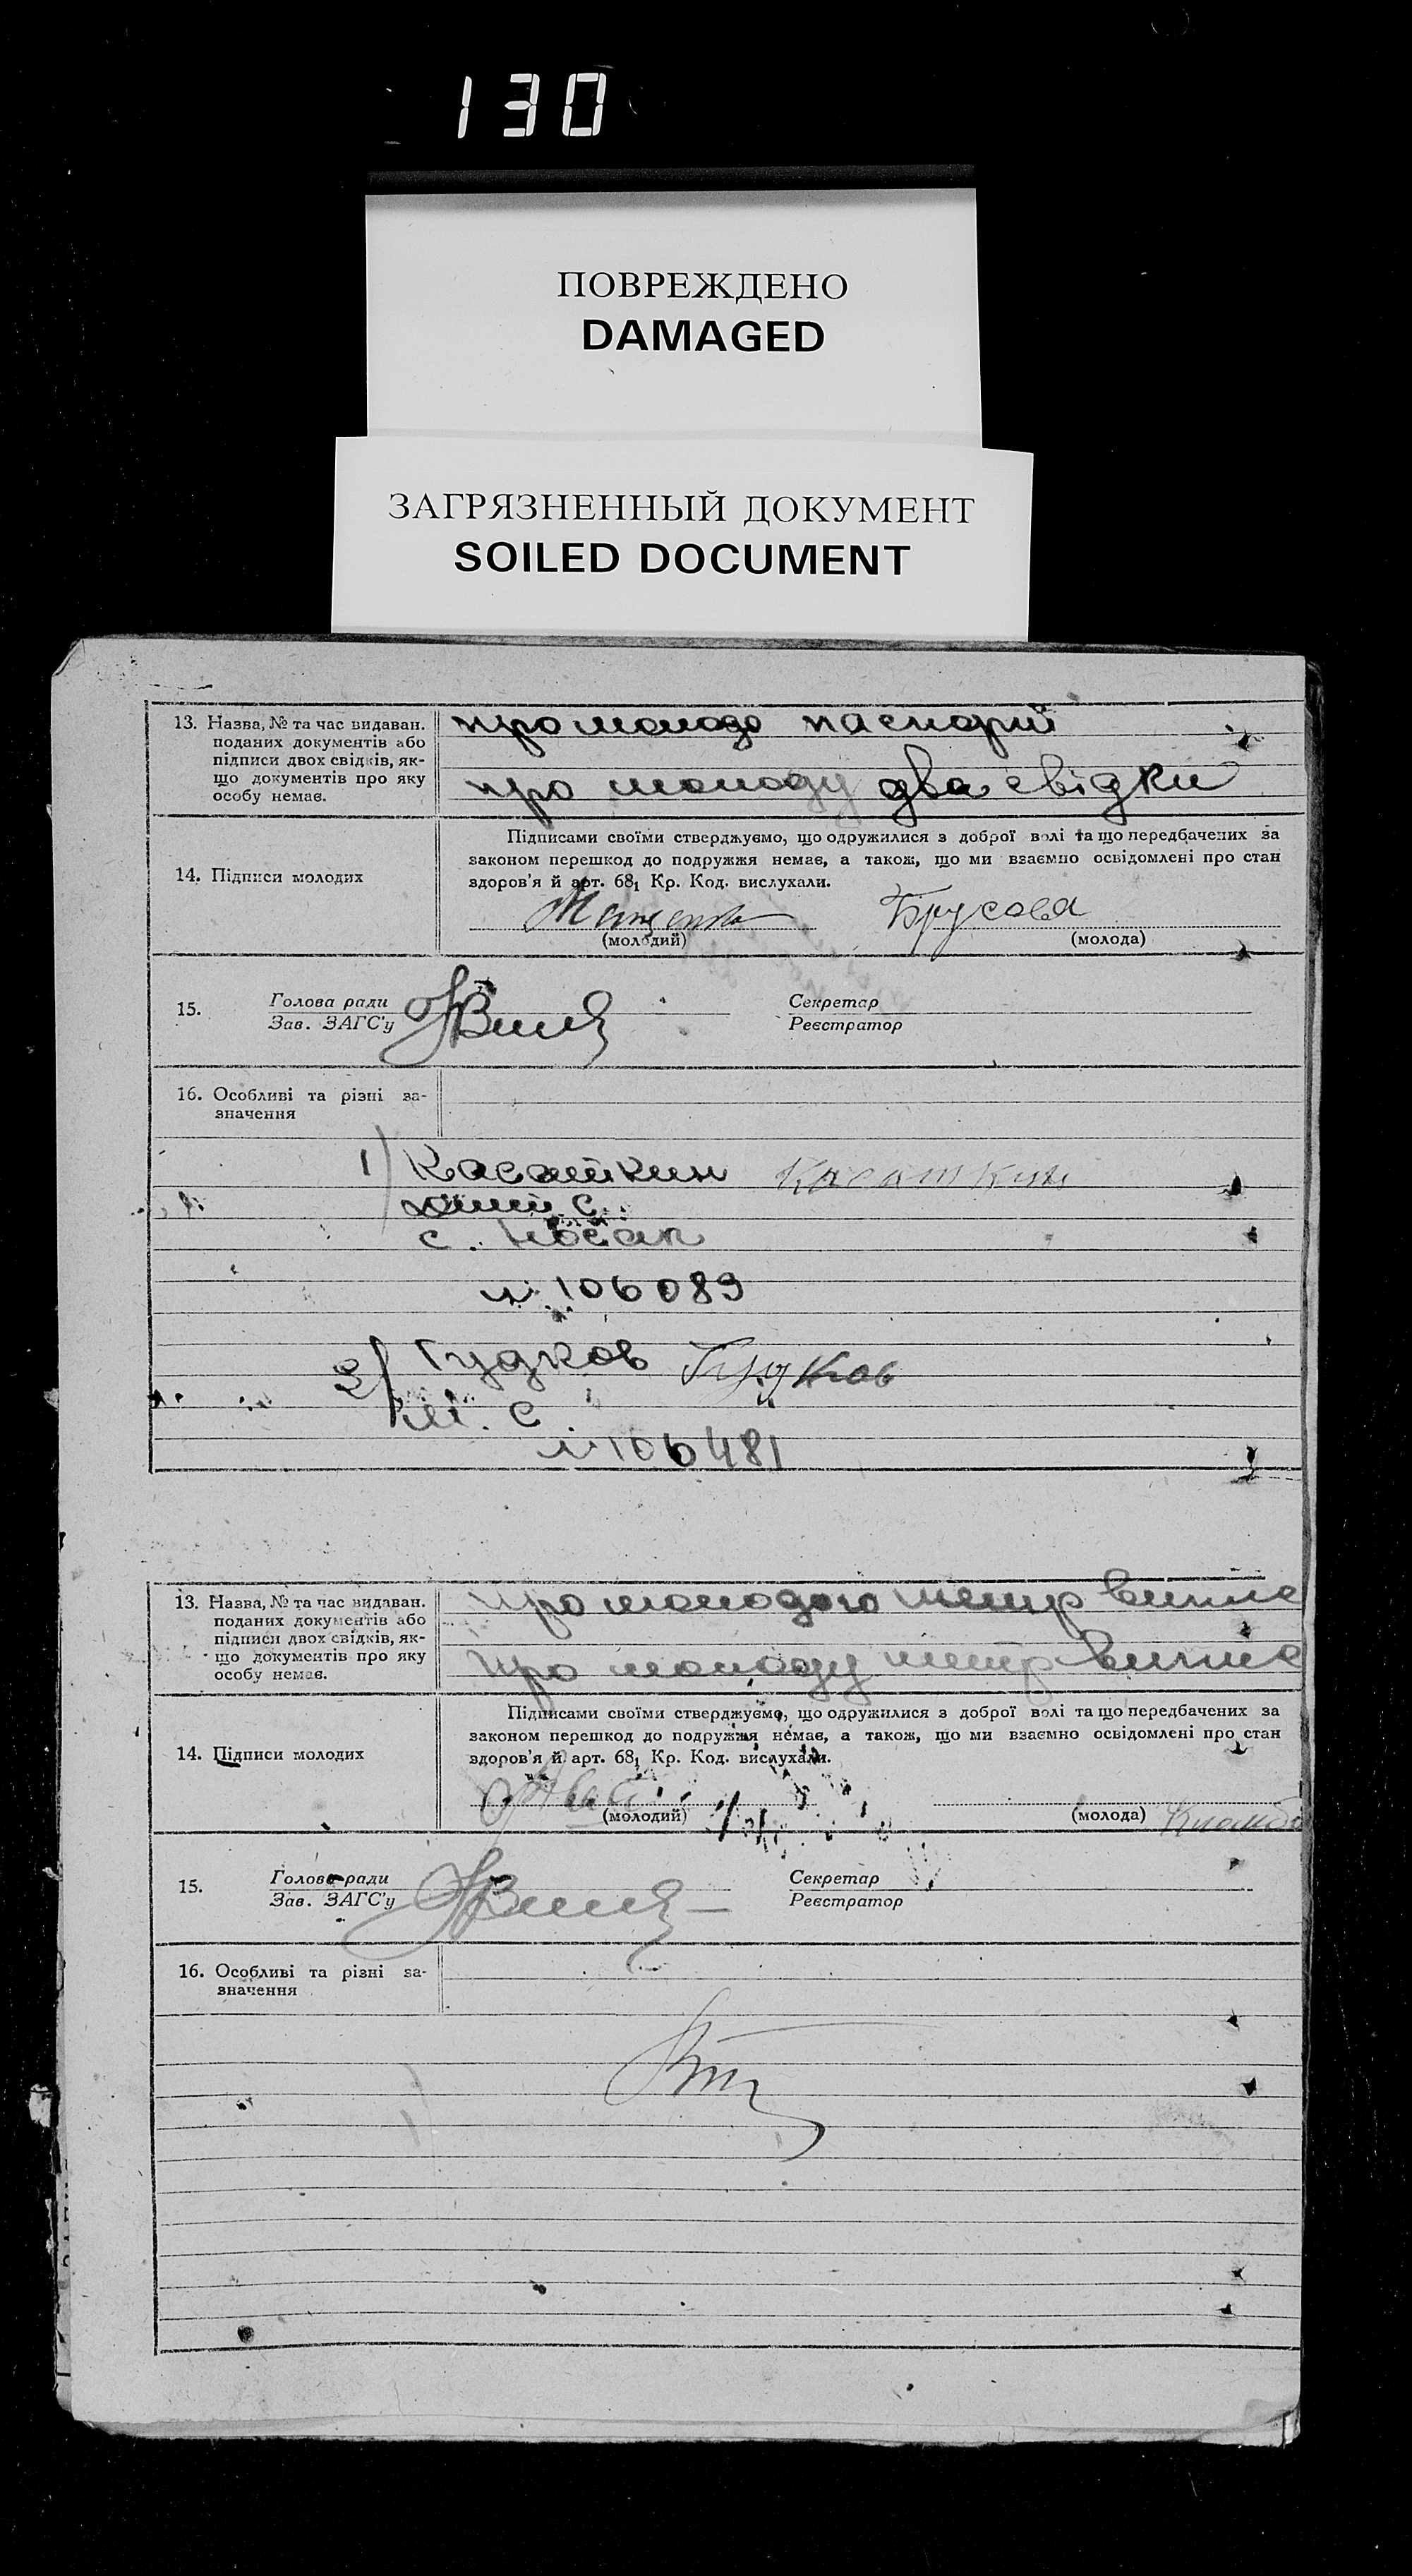 130
ПОВРЕЖДЕНО
DAMAGED
ЗАГРЯЗНЕННЫЙ ДОКУМЕНТ
SOILED DOCUMENT
13. Назва, № та час видаван.
поданих документів або
підписи двох свідків, як-
що документів про яку
особу немає.
про молодо паспорт
про молоду два свідки
14. Підписи молодих
Підписами своїми стверджуємо, що одружилися з доброї волі та що передбачених за
законом перешкод до подружжя немає, а також, що ми взаємно освідомлені про стан
здоров'я й арт. 68₁ Кр. Код. вислухали.
Брусова
(молодий) (молода)
15. Голова ради Секретар
Зав. ЗАГС'у Реєстратор
16. Особливі та різні за-
значення
1) Касаткин Касаткин
с.
№ 106089
2) Гудков Гудков
с.
№ 106481
13. Назва, № та час видаван.
поданих документів або
підписи двох свідків, як-
що документів про яку
особу немає.
про молодого метр випис
про молоду метр випис
14. Підписи молодих
Підписами своїми стверджуємо, що одружилися з доброї волі та що передбачених за
законом перешкод до подружжя немає, а також, що ми взаємно освідомлені про стан
здоров'я й арт. 68₁ Кр. Код. вислухали.
(молодий) (молода)
15. Голова ради Секретар
Зав. ЗАГС'у Реєстратор
16. Особливі та різні за-
значення